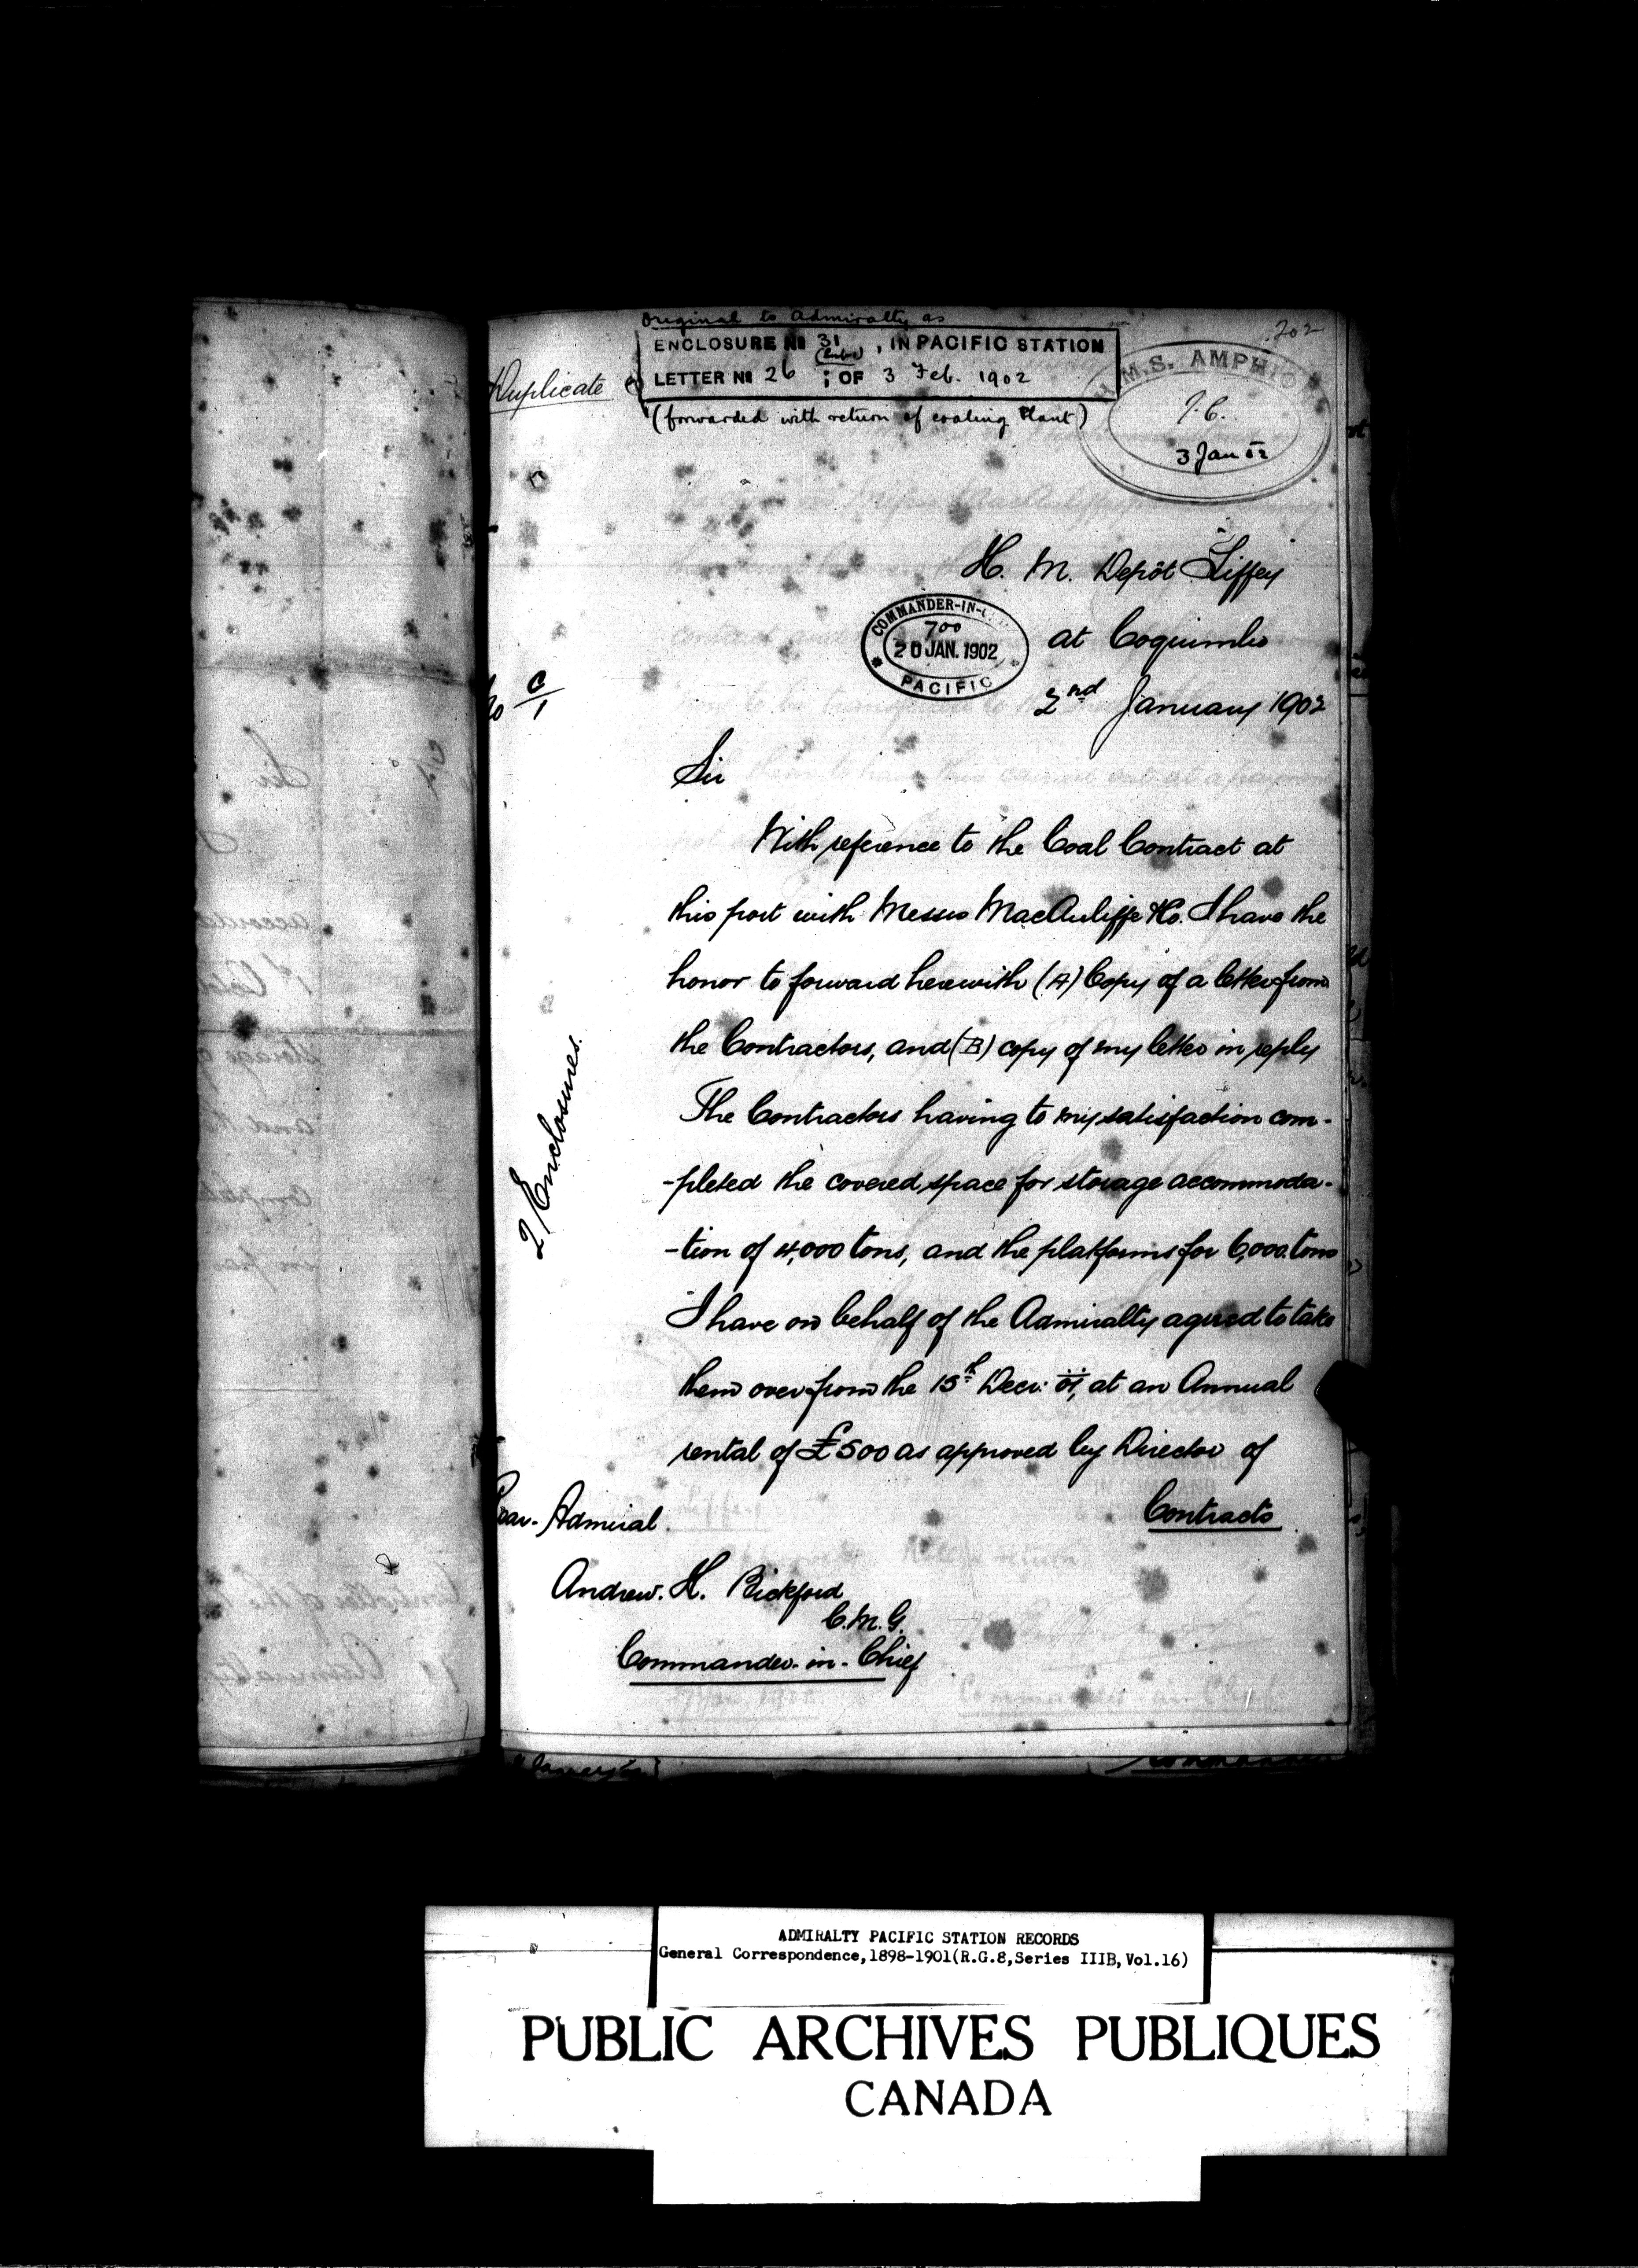 Original to Admiralty as
ENCLOSURE No 31, IN PACIFIC STATION
LETTER No 26 ; OF 3 Feb. 1902
(forwarded with return of coaling Plant)
Duplicate
202
H.M.S. AMPHION
3 Jan 02
H. M. Depôt Liffey
at Coquimbo
2nd January 1902
COMMANDER-IN-C
700
20 JAN. 1902
PACIFIC
No C/1
Sir
With reference to the Coal Contract at
this port with Messrs MacAuliffe & Co. I have the
honor to forward herewith (A) Copy of a letter from
the Contractors, and (B) copy of my letter in reply
The Contractors having to my satisfaction com-
-pleted the covered space for storage accommoda-
-tion of 4,000 tons, and the platforms for 6,000 tons
I have on behalf of the Admiralty agreed to take
them over from the 15th Decr: 01, at an Annual
rental of £500 as approved by Director of
Contracts
2 Enclosures.
Rear-Admiral
Andrew. H. Bickford
C.M.G.
Commander-in-Chief
ADMIRALTY PACIFIC STATION RECORDS
General Correspondence,1898-1901(R.G.8,Series IIIB,Vol.16)
PUBLIC ARCHIVES PUBLIQUES
CANADA